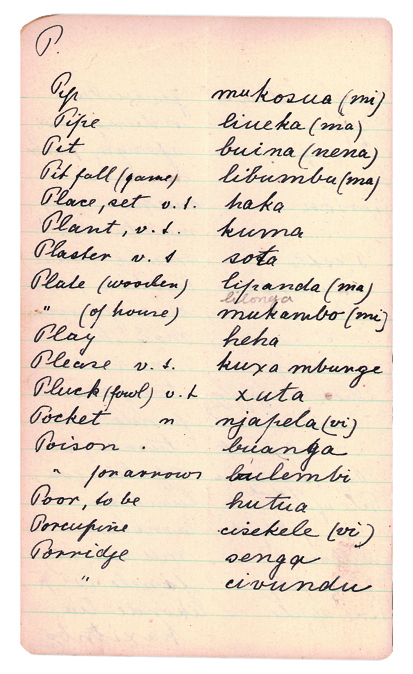 P.
Pip mukosua (mi)
Pipe liueka (ma)
Pit buina (nena)
Pit fall (game) libumbu (ma)
Place, set v.t. haka
Plant, v.t. kuma
Plaster v.t sota
Plate (wooden) lipanda (ma)
lilonga
" (of house) mukambo (mi)
Play heha
Please v.t. kuxa mbunge
Pluck (fowl) v.t xuta
Pocket n njapela (vi)
Poison . buanga
" for arrows bulembi
Poor, to be hutua
Porcupine cisekele (vi)
Porridge senga
" civundu